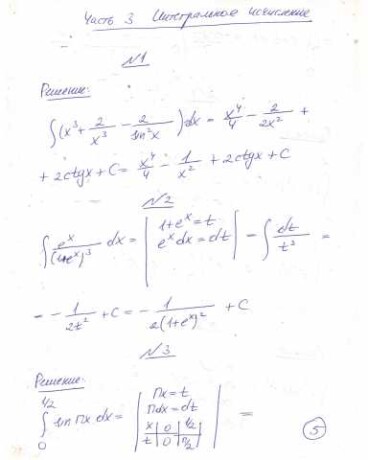 Часть 3 Интегральное исчисление
№1
Решение:
∫(x³ + 2/x³ − 2/sin²x)dx = x⁴/4 − 2/2x² +
+ 2ctgx + C = x⁴/4 − 1/x² + 2ctgx + C
№2
∫ eˣ/(1+eˣ)³ dx = | 1+eˣ = t
eˣdx = dt | = ∫ dt/t³ =
= − 1/2t² + C = − 1/2(1+eˣ)² + C
№3
Решение:
∫₀^½ sin πx dx = | πx = t
πdx = dt
x | 0 | ½
t | 0 | π/2 | =
5